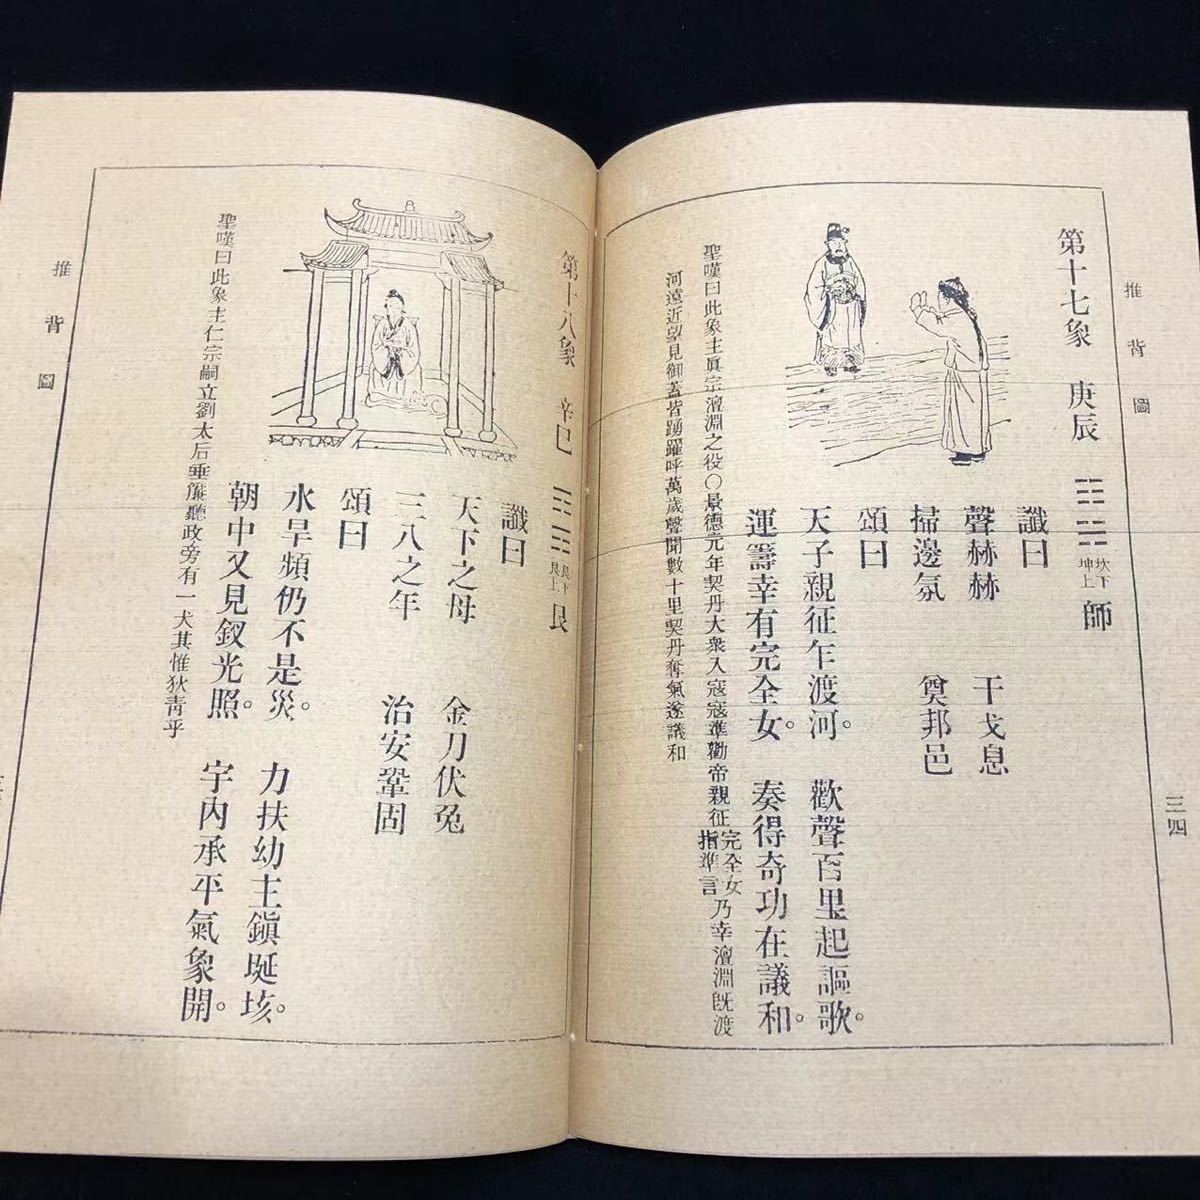 推背圖
三四
第十七象 庚辰 ䷆ 坎下坤上 師
讖曰
聲赫赫 干戈息
掃邊氛 奠邦邑
頌曰
天子親征乍渡河。 歡聲百里起謳歌。
運籌幸有完全女。 奏得奇功在議和。
聖嘆曰此象主眞宗澶淵之役〇景德元年契丹大衆入寇寇準勸帝親征完全女指準言乃幸澶淵旣渡
河遠近望見御蓋皆踴躍呼萬歲聲聞數十里契丹奪氣遂議和
第十八象 辛巳 ䷳ 艮下艮上 艮
讖曰
天下之母 金刀伏兔
三八之年 治安鞏固
頌曰
水旱頻仍不是災。 力扶幼主鎭埏垓。
朝中又見釵光照。 宇內承平氣象開。
聖嘆曰此象主仁宗嗣立劉太后垂簾聽政旁有一犬其惟狄靑乎
推背圖